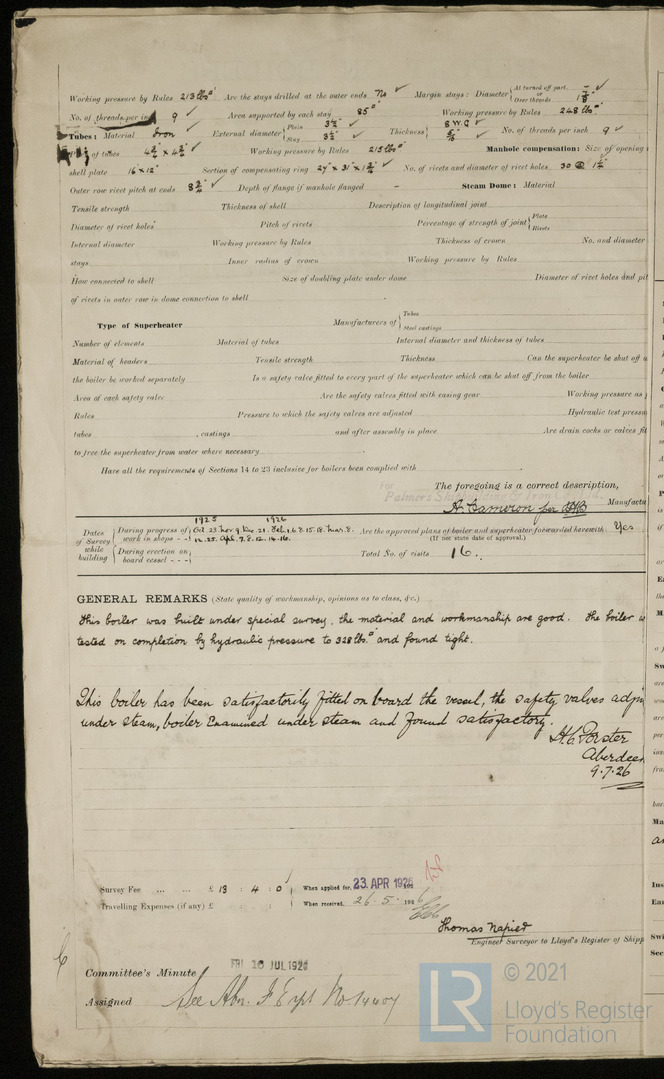 Working pressure by Rules 213 lbs□" Are the stays drilled at the outer ends No ✓ Margin stays: Diameter { At turned off part or Over threads 1 7/8" ✓
No. of threads per inch 9 ✓ Area supported by each stay 85□" Working pressure by Rules 248 lbs□"
Tubes: Material Iron ✓ External diameter { Plain 3 1/2" ✓ Stay 3 1/2" ✓ Thickness { 8 W.G ✓ 5/16" ✓ No. of threads per inch 9 ✓
of tubes 4 3/4" x 4 3/4" ✓ Working pressure by Rules 215 lbs□" Manhole compensation: Size of opening
shell plate 16" x 12" Section of compensating ring ✓ No. of rivets and diameter of rivet holes 30 @ 1 1/4"
Outer row rivet pitch at ends 8 3/4" ✓ Depth of flange if manhole flanged – Steam Dome: Material
Tensile strength Thickness of shell Description of longitudinal joint
Diameter of rivet holes Pitch of rivets Percentage of strength of joint { Plate Rivets
Internal diameter Working pressure by Rules Thickness of crown No. and diameter
stays Inner radius of crown Working pressure by Rules
How connected to shell Size of doubling plate under dome Diameter of rivet holes and pit
of rivets in outer row in dome connection to shell
Type of Superheater Manufacturers of { Tubes Steel castings
Number of elements Material of tubes Internal diameter and thickness of tubes
Material of headers Tensile strength Thickness Can the superheater be shut off a
the boiler be worked separately Is a safety valve fitted to every part of the superheater which can be shut off from the boiler
Area of each safety valve Are the safety valves fitted with easing gear Working pressure as
Rules Pressure to which the safety valves are adjusted Hydraulic test pressu
tubes , castings and after assembly in place Are drain cocks or valves fit
to free the superheater from water where necessary
Have all the requirements of Sections 14 to 23 inclusive for boilers been complied with
The foregoing is a correct description,
For Palmers Shipbuilding & Iron Co. Ltd.
A. Cameron for Manufactu
1925 1926
Dates of Survey while building { During progress of work in shops - - { Oct. 23. Nov. 9. Dec. 21. Feb. 1. 6. 8. 15. 18. Mar. 8. 12. 25. Apl. 7. 8. 12. 14. 16. Are the approved plans of boiler and superheater forwarded herewith Yes
(If not state date of approval.)
{ During erection on board vessel - - - { Total No. of visits 16.
GENERAL REMARKS (State quality of workmanship, opinions as to class, &c.)
This boiler was built under special survey, the material and workmanship are good. The boiler w
tested on completion by hydraulic pressure to 328 lbs.□" and found tight.
This boiler has been satisfactorily fitted on board the vessel, the safety valves adju
under steam, boiler Examined under steam and found satisfactory.
H. C. Forster
Aberdeen
9.7.26
Survey Fee ... ... £ 13 : 4 : 0 When applied for, 23 APR 1926
Travelling Expenses (if any) £ : : When received, 26.5. 1926
Thomas Napier
Engineer Surveyor to Lloyd's Register of Shipp
Committee's Minute FRI 16 JUL 1926
Assigned See Abn. F.E. rpt No 14407
© 2021
LR Lloyd's Register
Foundation